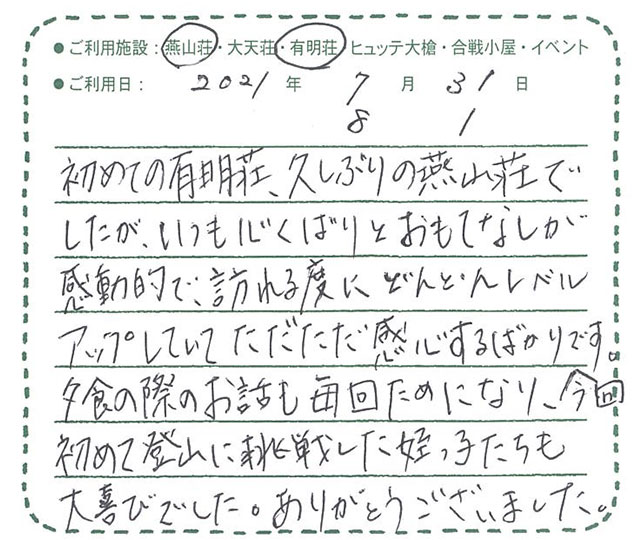 ●ご利用施設：燕山荘・大天荘・有明荘・ヒュッテ大槍・合戦小屋・イベント
●ご利用日：2021年7月31日
8 1
初めての有明荘、久しぶりの燕山荘で
したが、いつも心くばりとおもてなしが
感動的で、訪れる度にどんどんレベル
アップしていてただただ感心するばかりです。
夕食の際のお話も毎回ためになり、今回
初めて登山に挑戦した姪っ子たちも
大喜びでした。ありがとうございました。